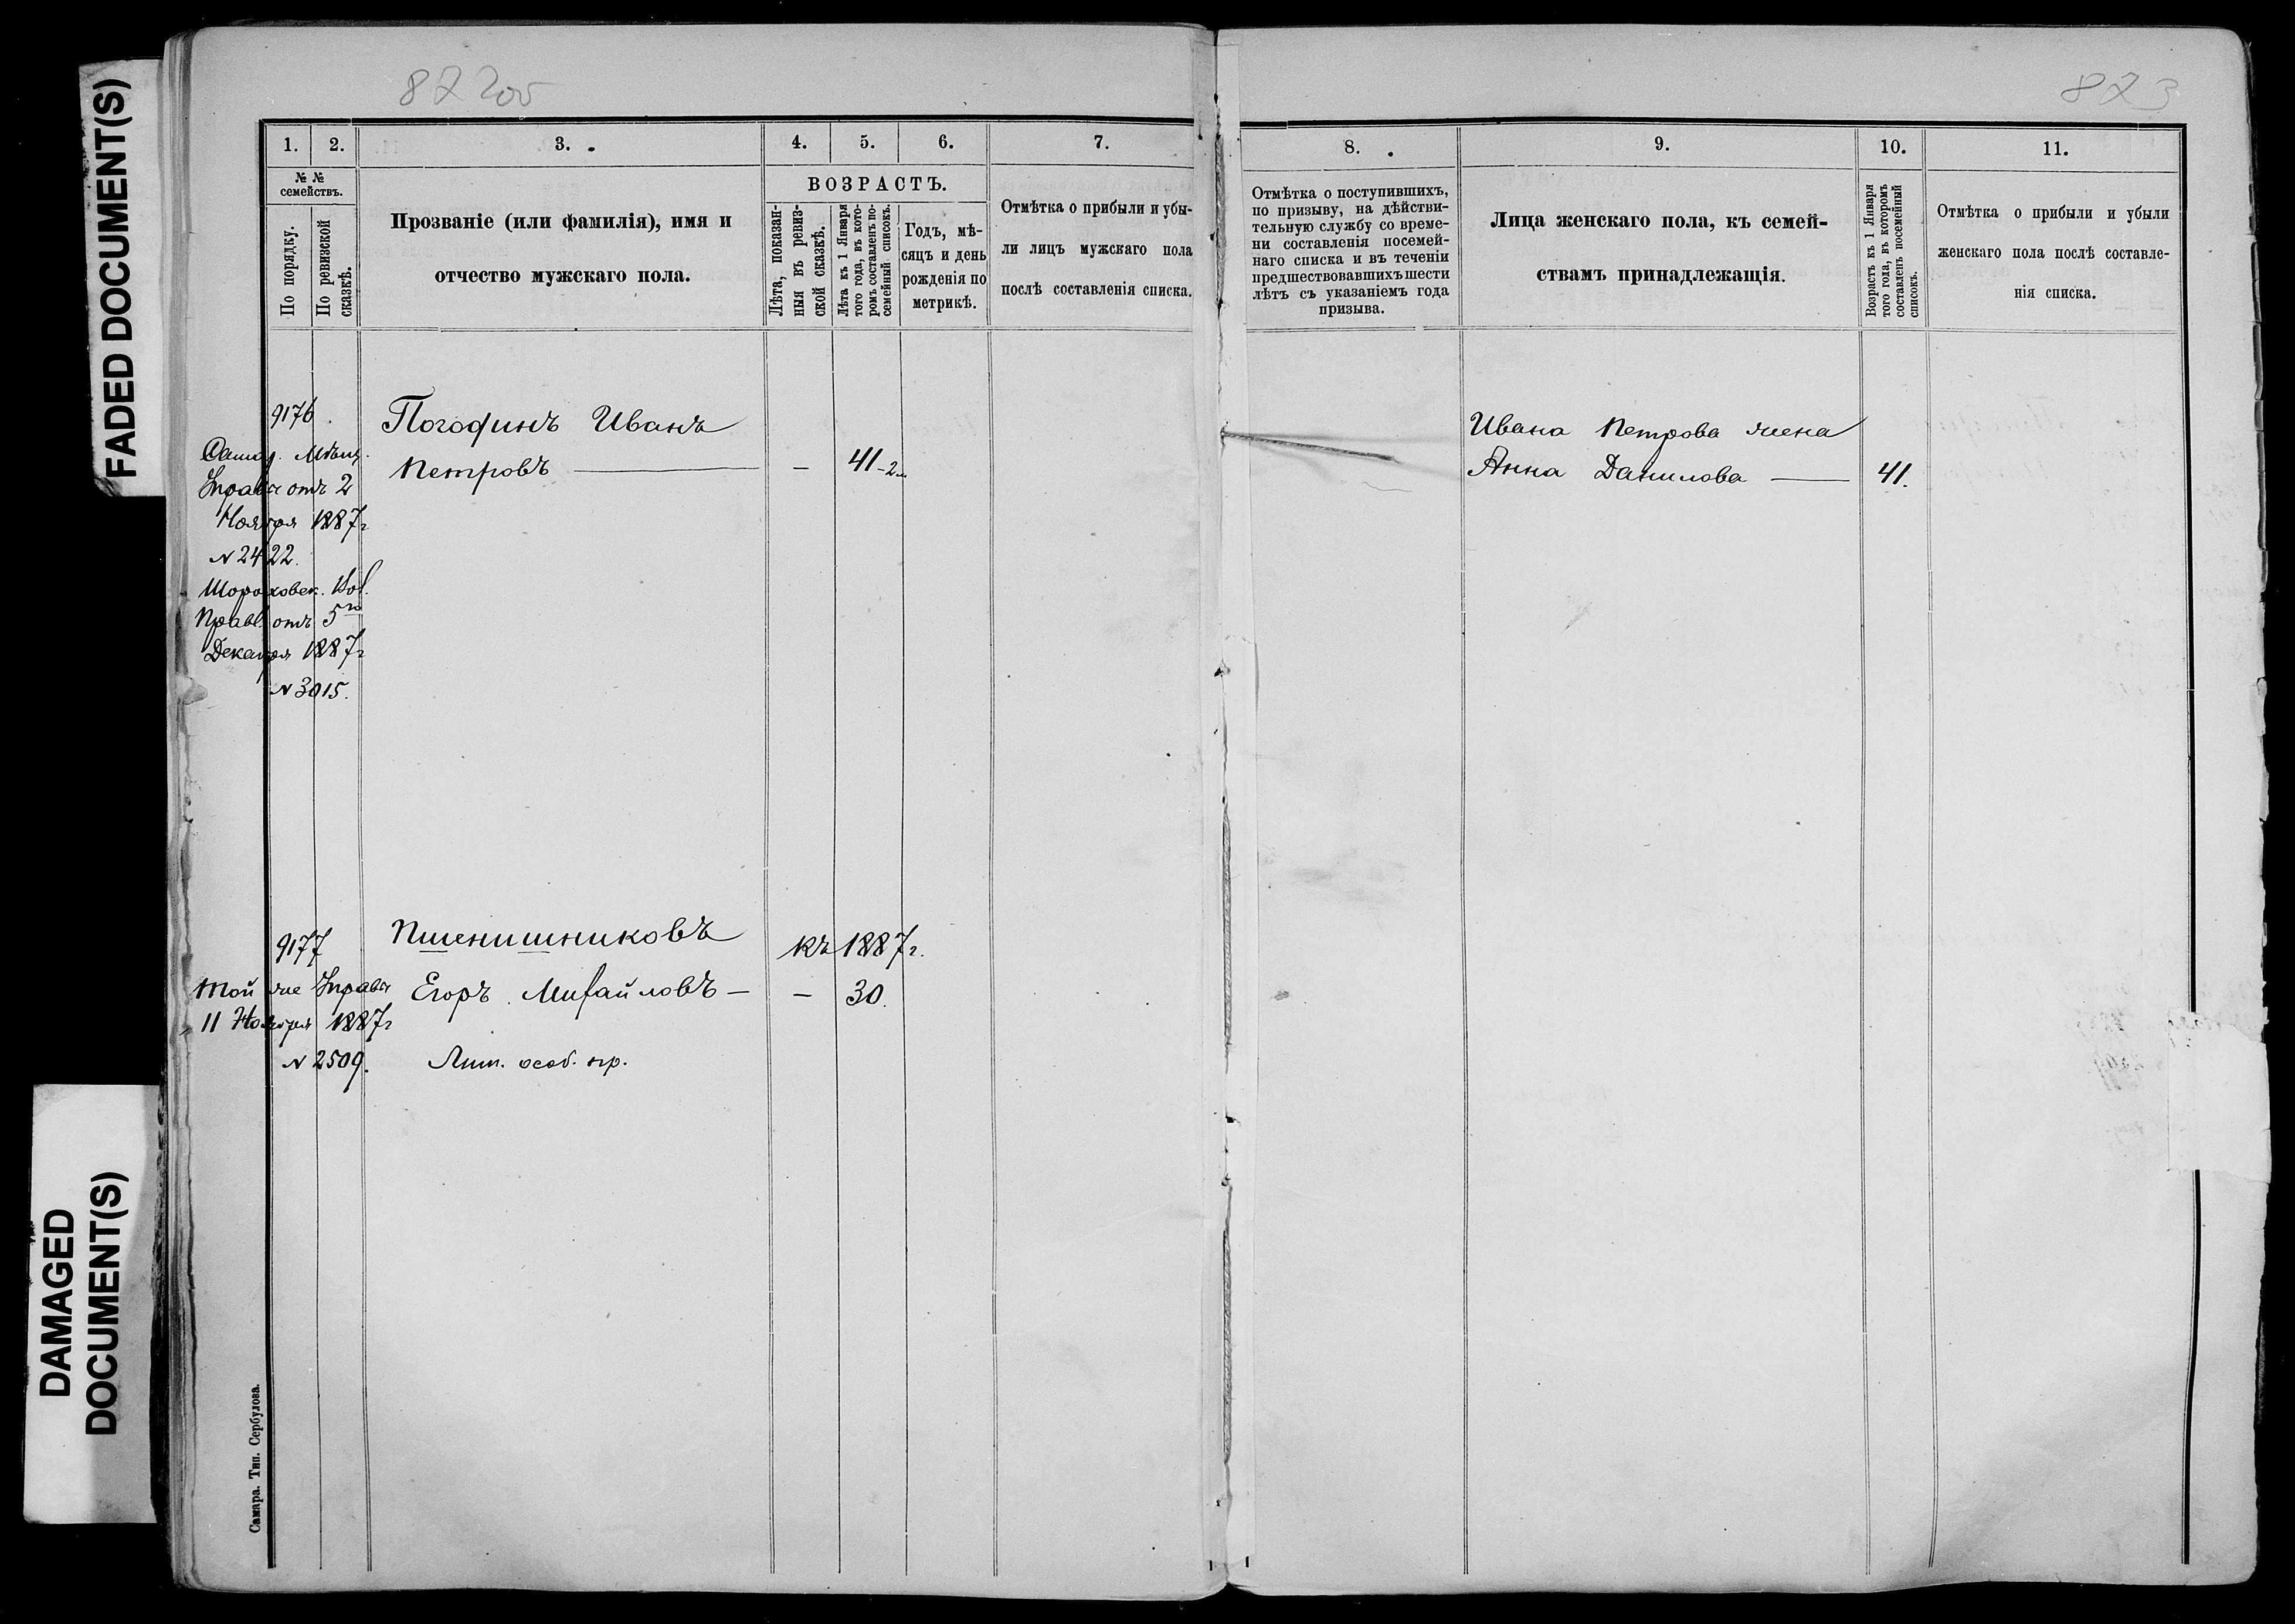 FADED DOCUMENT(S)
DAMAGED
DOCUMENT(S)
822 об
1.
2.
3.
4.
5.
6.
7.
№ №
семействъ.
По порядку.
По ревизской
сказкѣ.
Прозваніе (или фамилія), имя и
отчество мужскаго пола.
ВОЗРАСТЪ.
Лѣта, показан-
ныя въ ревиз-
ской сказкѣ.
Лѣта къ 1 Января
того года, въ кото-
ромъ составленъ по-
семейный списокъ.
Годъ, мѣ-
сяцъ и день
рожденія по
метрикѣ.
Отмѣтка о прибыли и убы-
ли лицъ мужскаго пола
послѣ составленія списка.
9176
Самар. Мѣщ.
Управы отъ 2
Ноября 1887 г
№ 2422.
Вол.
Правл. отъ 5го
Декабря 1887 г
№ 3015.
Погодинъ Иванъ
Петровъ — — 41-2 м
9177
Той же Управы
11 Ноября 1887 г
№ 2509.
Пшенишниковъ къ 1887 г.
Егоръ Михайловъ — — 30.
Лит. особ. пр.
Самара. Тип. Сербулова.
823
8.
9.
10.
11.
Отмѣтка о поступившихъ,
по призыву, на дѣйстви-
тельную службу со време-
ни составленія посемей-
наго списка и въ теченіи
предшествовавшихъ шести
лѣтъ съ указаніемъ года
призыва.
Лица женскаго пола, къ семей-
ствамъ принадлежащія.
Возрастъ къ 1 Января
того года, въ которомъ
составленъ посемейный
списокъ.
Отмѣтка о прибыли и убыли
женскаго пола послѣ составле-
нія списка.
Ивана Петрова жена
Анна Данилова — 41.